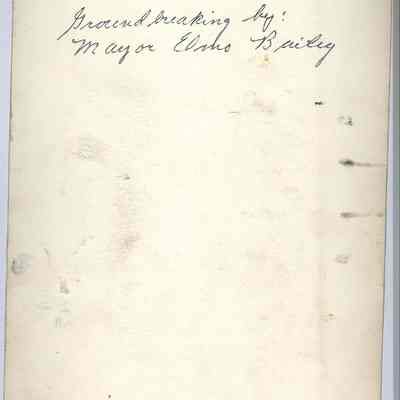 Groundbreaking by:
Mayor Elmo Bailey